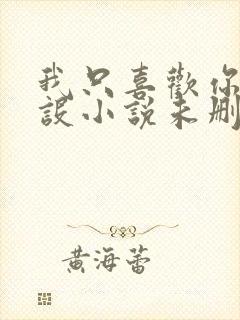 我只喜歡你
設小說未刪
黃海蕾